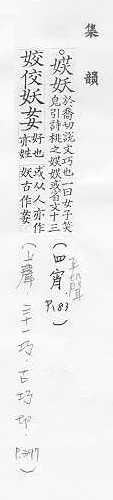 集韻
。媄妖於喬切說文巧也一曰女子笑皃引詩桃之媄媄或省文十三
(四宵. P.183)
平聲
姣佼妖㚣好也亦姓或从人亦作妖古作㚣
(上聲 三十一巧.古巧切.P.397)